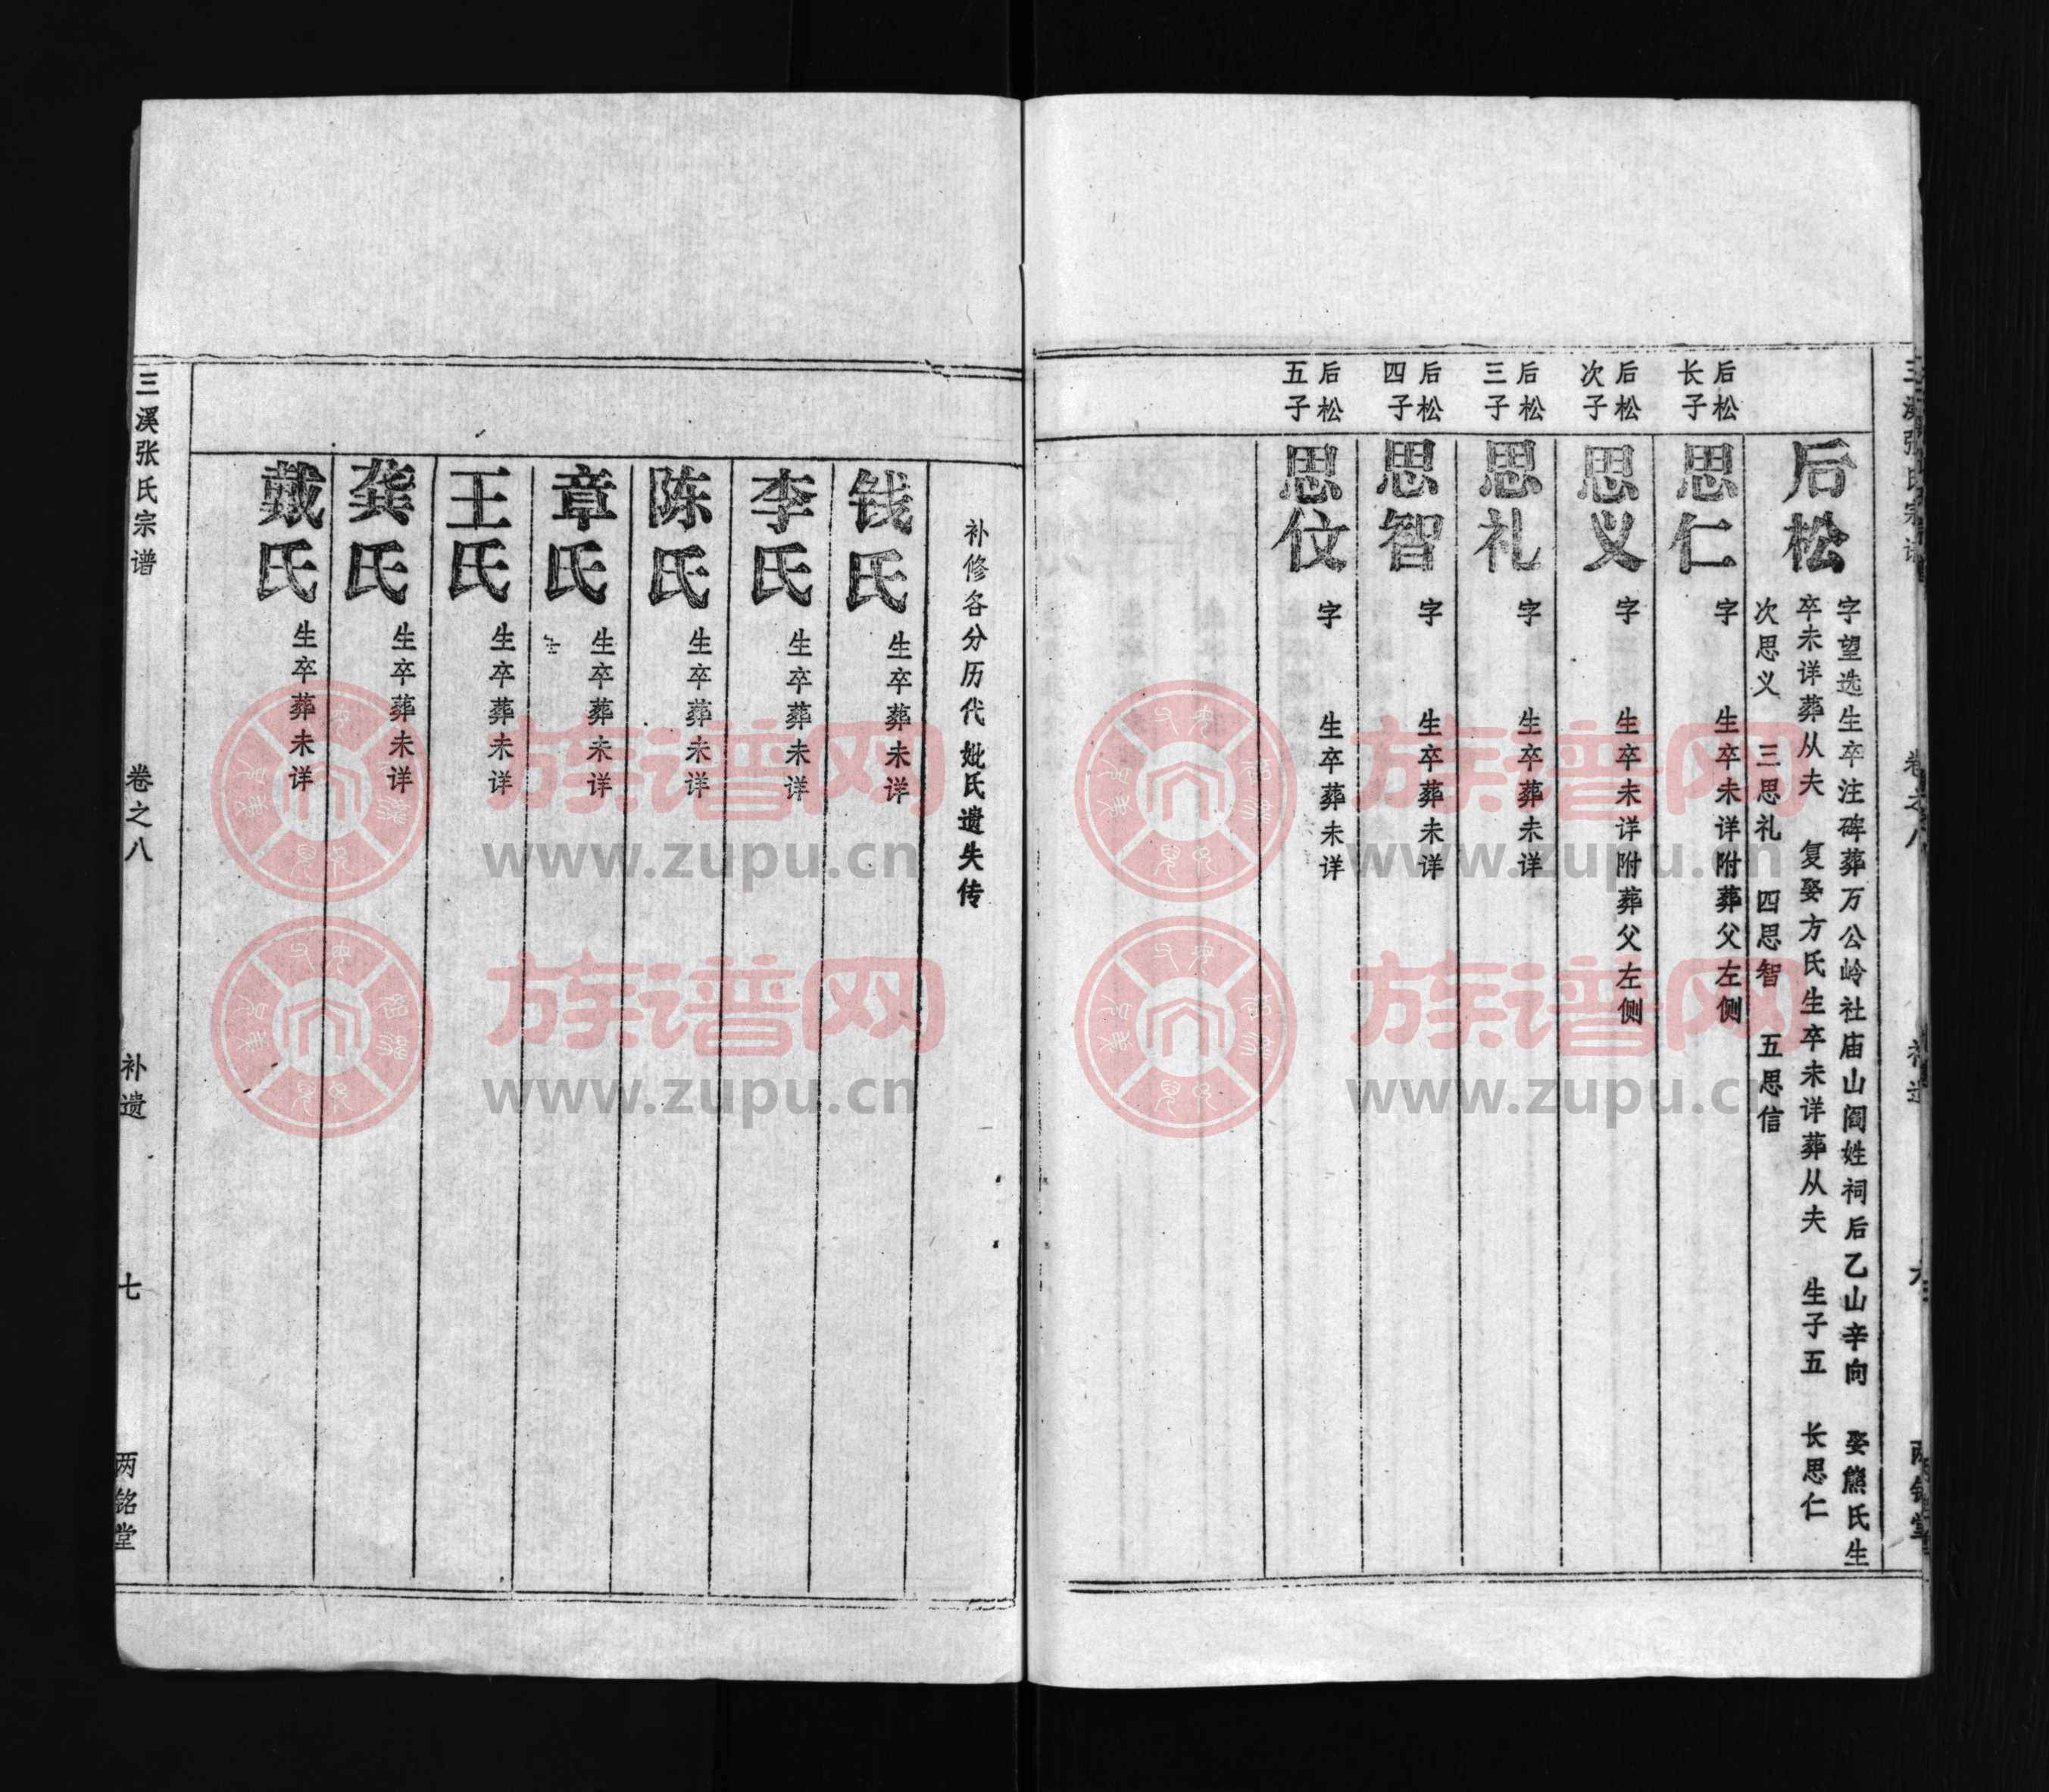 三溪张氏宗谱
卷之八
补遗
六
两铭堂
后松
字望选生卒注碑葬万公岭社庙山阎姓祠后乙山辛向 娶熊氏生
卒未详葬从夫 复娶方氏生卒未详葬从夫 生子五 长思仁
次思义 三思礼 四思智 五思信
后松
长子
思仁
字 生卒未详附葬父左侧
后松
次子
思义
字 生卒未详附葬父左侧
后松
三子
思礼
字 生卒葬未详
后松
四子
思智
字 生卒葬未详
后松
五子
思伩
字 生卒葬未详
补修各分历代妣氏遗失传
钱氏
生卒葬未详
李氏
生卒葬未详
陈氏
生卒葬未详
章氏
生卒葬未详
王氏
生卒葬未详
龚氏
生卒葬未详
戴氏
生卒葬未详
三溪张氏宗谱
卷之八
补遗
七
两铭堂
族谱网
www.zupu.cn
族谱网
www.zupu.cn
族谱网
www.zupu.cn
族谱网
www.zupu.cn